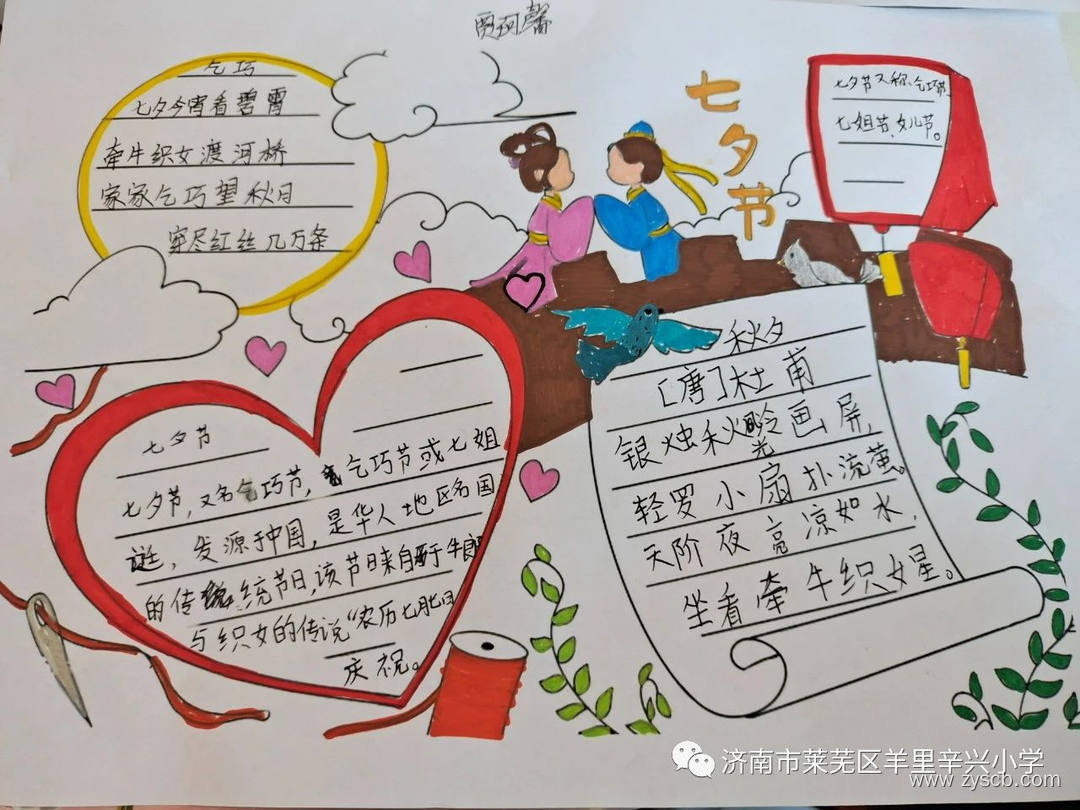 贾珂馨
乞巧
七夕今宵看碧霄
牵牛织女渡河桥
家家乞巧望秋日
穿尽红丝几万条
七夕节
七夕节又称、乞巧节、
七姐节、女儿节。
七夕节
七夕节,又名乞巧节,乞巧节或七姐
诞,发源于中国,是华人地区名国
的传统节日,该节日来自于牛郎
与织女的传说"农历七月七日
庆祝。
秋夕
[唐]杜甫
银烛秋光冷画屏,
轻罗小扇扑流萤。
天阶夜亮凉如水,
坐看牵牛织女星。
济南市莱芜区羊里辛兴小学
www.zyscb.com